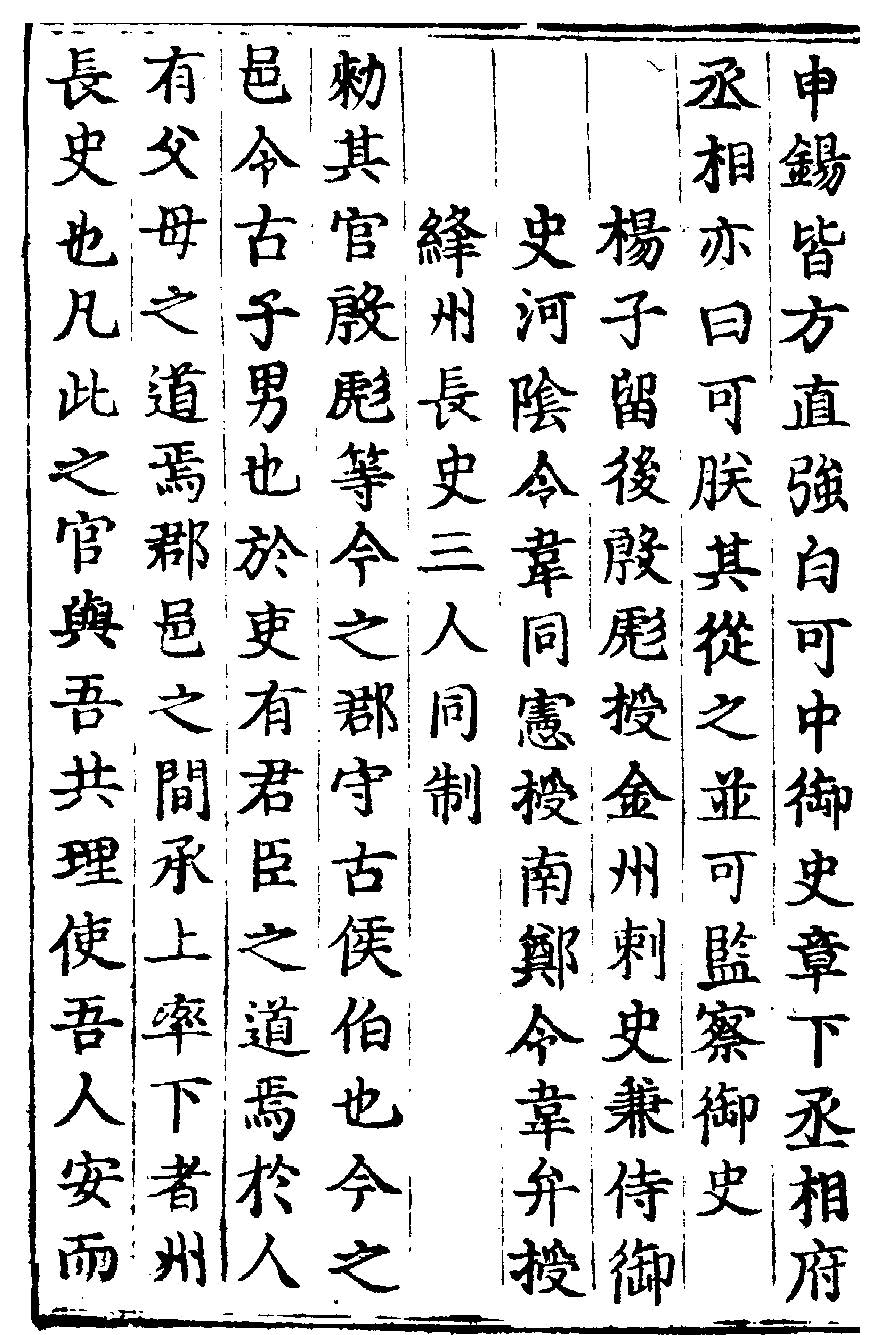 申錫皆方直強白可中御史章下丞相府
丞相亦曰可朕其從之並可監察御史
楊子留後殷彪授金州刺史兼侍御
史河陰令韋同憲授南鄭令韋弁授
絳州長史三人同制
勑其官殷彪等今之郡守古侯伯也今之
邑令古子男也於吏有君臣之道焉於人
有父母之道焉郡邑之間承上率下者州
長史也凡此之官與吾共理使吾人安而